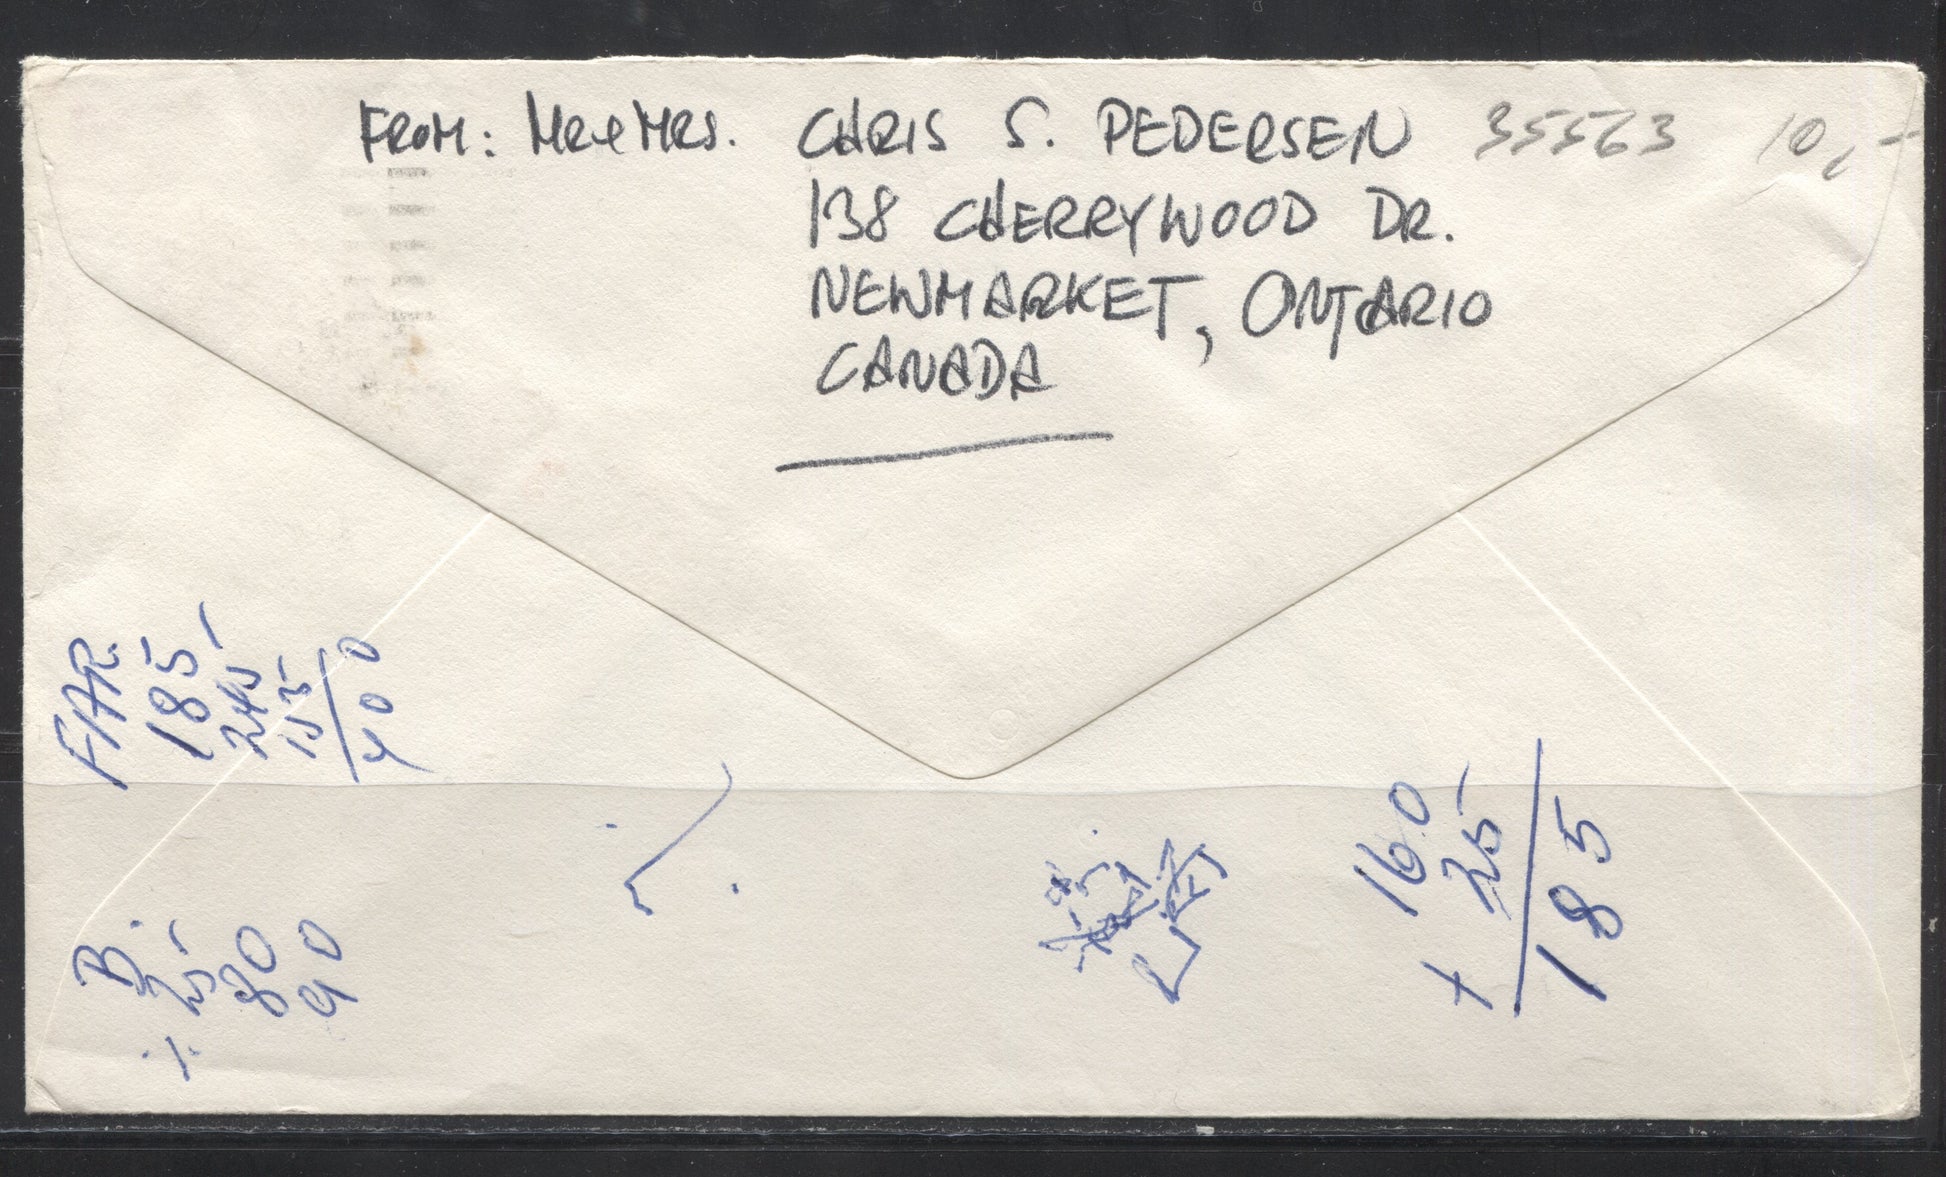 FROM: MR & MRS. CHRIS S. PEDERSEN 35563 10,-
138 CHERRYWOOD DR.
NEWMARKET, ONTARIO
CANADA
FAR
185
245
400
B.
25
80
90
160
+ 25
185